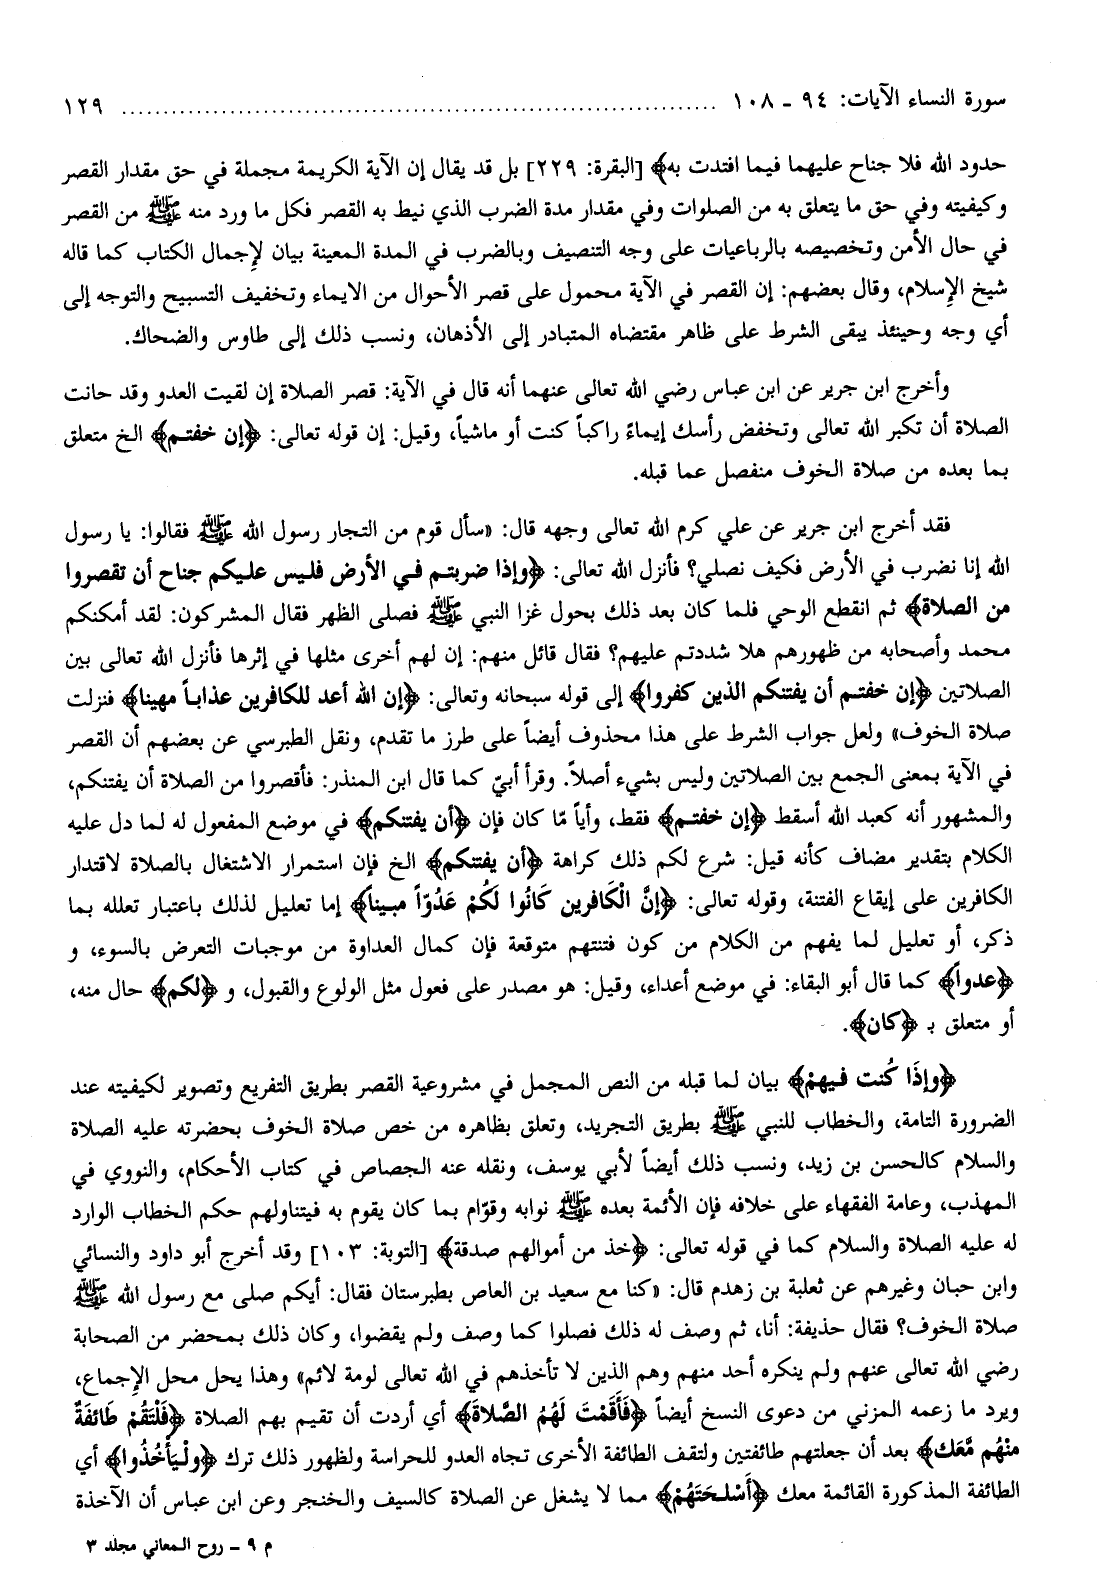 سورة النساء الآيات: ٩٤ - ١٠٨ ............................................................ ١٢٩
حدود الله فلا جناح عليهما فيما افتدت به﴾ [البقرة: ٢٢٩] بل قد يقال إن الآية الكريمة مجملة في حق مقدار القصر
وكيفيته وفي حق ما يتعلق به من الصلوات وفي مقدار مدة الضرب الذي نيط به القصر فكل ما ورد منه ﷺ من القصر
في حال الأمن وتخصيصه بالرباعيات على وجه التنصيف وبالضرب في المدة المعينة بيان لإجمال الكتاب كما قاله
شيخ الإسلام، وقال بعضهم: إن القصر في الآية محمول على قصر الأحوال من الايماء وتخفيف التسبيح والتوجه إلى
أي وجه وحينئذ يبقى الشرط على ظاهر مقتضاه المتبادر إلى الأذهان، ونسب ذلك إلى طاوس والضحاك.
وأخرج ابن جرير عن ابن عباس رضي الله تعالى عنهما أنه قال في الآية: قصر الصلاة إن لقيت العدو وقد حانت
الصلاة أن تكبر الله تعالى وتخفض رأسك إيماءً راكباً كنت أو ماشياً، وقيل: إن قوله تعالى: ﴿إن خفتم﴾ الخ متعلق
بما بعده من صلاة الخوف منفصل عما قبله.
فقد أخرج ابن جرير عن علي كرم الله تعالى وجهه قال: «سأل قوم من التجار رسول الله ﷺ فقالوا: يا رسول
الله إنا نضرب في الأرض فكيف نصلي؟ فأنزل الله تعالى: ﴿وإذا ضربتم في الأرض فليس عليكم جناح أن تقصروا
من الصلاة﴾ ثم انقطع الوحي فلما كان بعد ذلك بحول غزا النبي ﷺ فصلى الظهر فقال المشركون: لقد أمكنكم
محمد وأصحابه من ظهورهم هلا شددتم عليهم؟ فقال قائل منهم: إن لهم أخرى مثلها في إثرها فأنزل الله تعالى بين
الصلاتين ﴿إن خفتم أن يفتنكم الذين كفروا﴾ إلى قوله سبحانه وتعالى: ﴿إن الله أعد للكافرين عذاباً مهينا﴾ فنزلت
صلاة الخوف» ولعل جواب الشرط على هذا محذوف أيضاً على طرز ما تقدم، ونقل الطبرسي عن بعضهم أن القصر
في الآية بمعنى الجمع بين الصلاتين وليس بشيء أصلاً. وقرأ أبيّ كما قال ابن المنذر: فأقصروا من الصلاة أن يفتنكم،
والمشهور أنه كعبد الله أسقط ﴿إن خفتم﴾ فقط، وأياً مّا كان فإن ﴿أن يفتنكم﴾ في موضع المفعول له لما دل عليه
الكلام بتقدير مضاف كأنه قيل: شرع لكم ذلك كراهة ﴿أن يفتنكم﴾ الخ فإن استمرار الاشتغال بالصلاة لاقتدار
الكافرين على إيقاع الفتنة، وقوله تعالى: ﴿إنَّ الْكَافرين كَانُوا لَكُمْ عَدُوّاً مبيناً﴾ إما تعليل لذلك باعتبار تعلله بما
ذكر، أو تعليل لما يفهم من الكلام من كون فتنتهم متوقعة فإن كمال العداوة من موجبات التعرض بالسوء، و
﴿عدواً﴾ كما قال أبو البقاء: في موضع أعداء، وقيل: هو مصدر على فعول مثل الولوع والقبول، و ﴿لكم﴾ حال منه،
أو متعلق بـ ﴿كان﴾.
﴿وإذَا كُنت فيهمْ﴾ بيان لما قبله من النص المجمل في مشروعية القصر بطريق التفريع وتصوير لكيفيته عند
الضرورة التامة، والخطاب للنبي ﷺ بطريق التجريد، وتعلق بظاهره من خص صلاة الخوف بحضرته عليه الصلاة
والسلام كالحسن بن زيد، ونسب ذلك أيضاً لأبي يوسف، ونقله عنه الجصاص في كتاب الأحكام، والنووي في
المهذب، وعامة الفقهاء على خلافه فإن الأئمة بعده ﷺ نوابه وقوّام بما كان يقوم به فيتناولهم حكم الخطاب الوارد
له عليه الصلاة والسلام كما في قوله تعالى: ﴿خذ من أموالهم صدقة﴾ [التوبة: ١٠٣] وقد أخرج أبو داود والنسائي
وابن حبان وغيرهم عن ثعلبة بن زهدم قال: «كنا مع سعيد بن العاص بطبرستان فقال: أيكم صلى مع رسول الله ﷺ
صلاة الخوف؟ فقال حذيفة: أنا، ثم وصف له ذلك فصلوا كما وصف ولم يقضوا، وكان ذلك بمحضر من الصحابة
رضي الله تعالى عنهم ولم ينكره أحد منهم وهم الذين لا تأخذهم في الله تعالى لومة لائم» وهذا يحل محل الإجماع،
ويرد ما زعمه المزني من دعوى النسخ أيضاً ﴿فَأَقَمْتَ لَهُمُ الصَّلاةَ﴾ أي أردت أن تقيم بهم الصلاة ﴿فَلْتَقُمْ طَائفَةٌ
منْهُم مَّعَك﴾ بعد أن جعلتهم طائفتين ولتقف الطائفة الأخرى تجاه العدو للحراسة ولظهور ذلك ترك ﴿ولْيَأخُذُوا﴾ أي
الطائفة المذكورة القائمة معك ﴿أَسْلحَتَهُمْ﴾ مما لا يشغل عن الصلاة كالسيف والخنجر وعن ابن عباس أن الآخذة
م ٩ - روح المعاني مجلد ٣